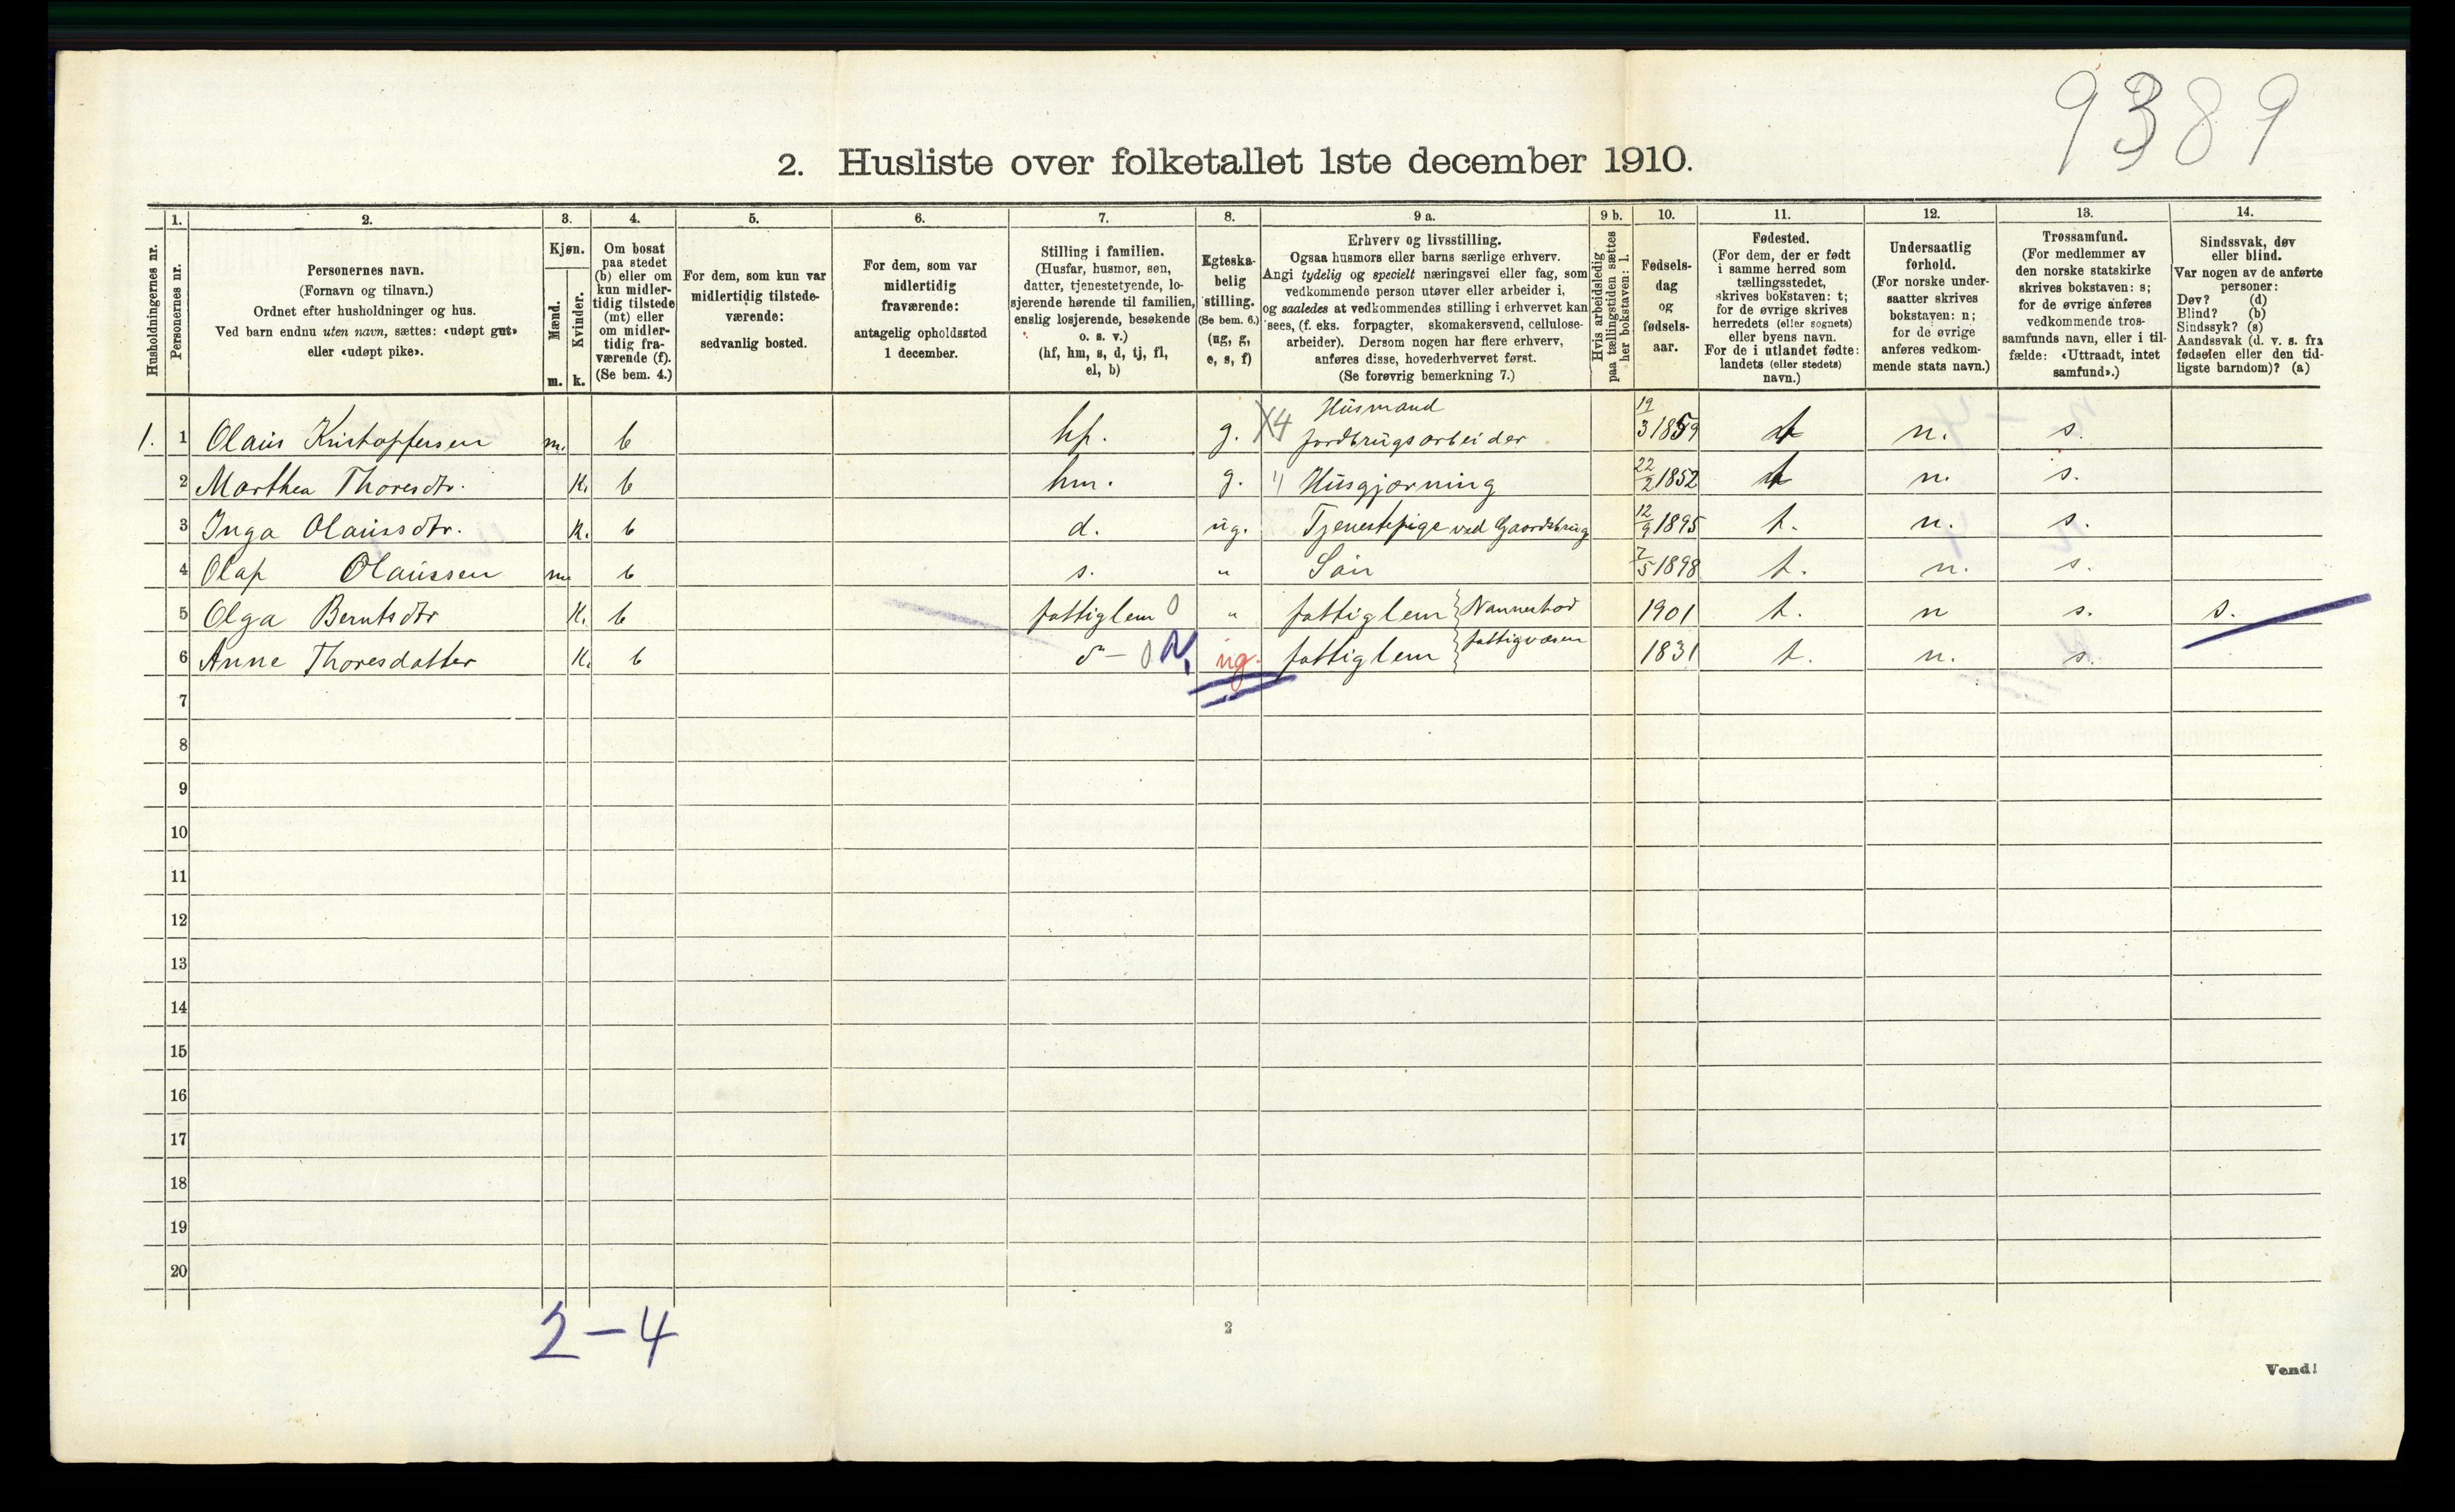 9389
2. Husliste over folketallet 1ste december 1910.
1. 2. 3. 4. 5. 6. 7. 8. 9 a. 9 b. 10. 11. 12. 13. 14.
Husholdningernes nr.
Personernes nr.
Personernes navn.
(Fornavn og tilnavn.)
Ordnet efter husholdninger og hus.
Ved barn endnu uten navn, sættes: «udøpt gut»
eller «udøpt pike».
Kjøn.
Mænd.
Kvinder.
m. k.
Om bosat
paa stedet
(b) eller om
kun midler-
tidig tilstede
(mt) eller
om midler-
tidig fra-
værende (f).
(Se bem. 4.)
For dem, som kun var
midlertidig tilstede-
værende:
sedvanlig bosted.
For dem, som var
midlertidig
fraværende:
antagelig opholdssted
1 december.
Stilling i familien.
(Husfar, husmor, søn,
datter, tjenestetyende, lo-
sjerende hørende til familien,
enslig losjerende, besøkende
o. s. v.)
(hf, hm, s, d, tj, fl,
el, b)
Egteska-
belig
stilling.
(Se bem. 6.)
(ug, g,
e, s, f)
Erhverv og livsstilling.
Ogsaa husmors eller barns særlige erhverv.
Angi tydelig og specielt næringsvei eller fag, som
vedkommende person utøver eller arbeider i,
og saaledes at vedkommendes stilling i erhvervet kan
sees, (f. eks. forpagter, skomakersvend, cellulose-
arbeider). Dersom nogen har flere erhverv,
anføres disse, hovederhvervet først.
(Se forøvrig bemerkning 7.)
Hvis arbeidsledig
paa tællingstiden sættes
her bokstaven: l.
Fødsels-
dag
og
fødsels-
aar.
Fødested.
(For dem, der er født
i samme herred som
tællingsstedet,
skrives bokstaven: t;
for de øvrige skrives
herredets (eller sognets)
eller byens navn.
For de i utlandet fødte:
landets (eller stedets)
navn.)
Undersaatlig
forhold.
(For norske under-
saatter skrives
bokstaven: n;
for de øvrige
anføres vedkom-
mende stats navn.)
Trossamfund.
(For medlemmer av
den norske statskirke
skrives bokstaven: s;
for de øvrige anføres
vedkommende tros-
samfunds navn, eller i til-
fælde: «Uttraadt, intet
samfund».)
Sindssvak, døv
eller blind.
Var nogen av de anførte
personer:
Døv? (d)
Blind? (b)
Sindssyk? (s)
Aandssvak (d. v. s. fra
fødselen eller den tid-
ligste barndom)? (a)
Husmand
1. 1 Olaus Kristoffersen m. b hf. g. X4 Jordbrugsarbeider 19/3 1859 t n. s.
2 Marthea Thoresdtr. K. b hm. g. " Husgjerning 22/2 1852 t n. s.
3 Inga Olaussdtr. K. b d. ug. Tjenestepige ved Gaardsbrug 12/9 1895 t. n. s.
4 Olaf Olaussen m. b s. " Søn 7/5 1898 t. n. s.
5 Olga Berntsdtr K. b fattiglem 0 " fattiglem } Nannestad 1901 t. n s. s.
6 Anne Thoresdatter K. b d⁰ — 0 N. ug. fattiglem } fattigvæsen 1831 t. n. s.
7
8
9
10
11
12
13
14
15
16
17
18
19
20
2 – 4
2
Vend!